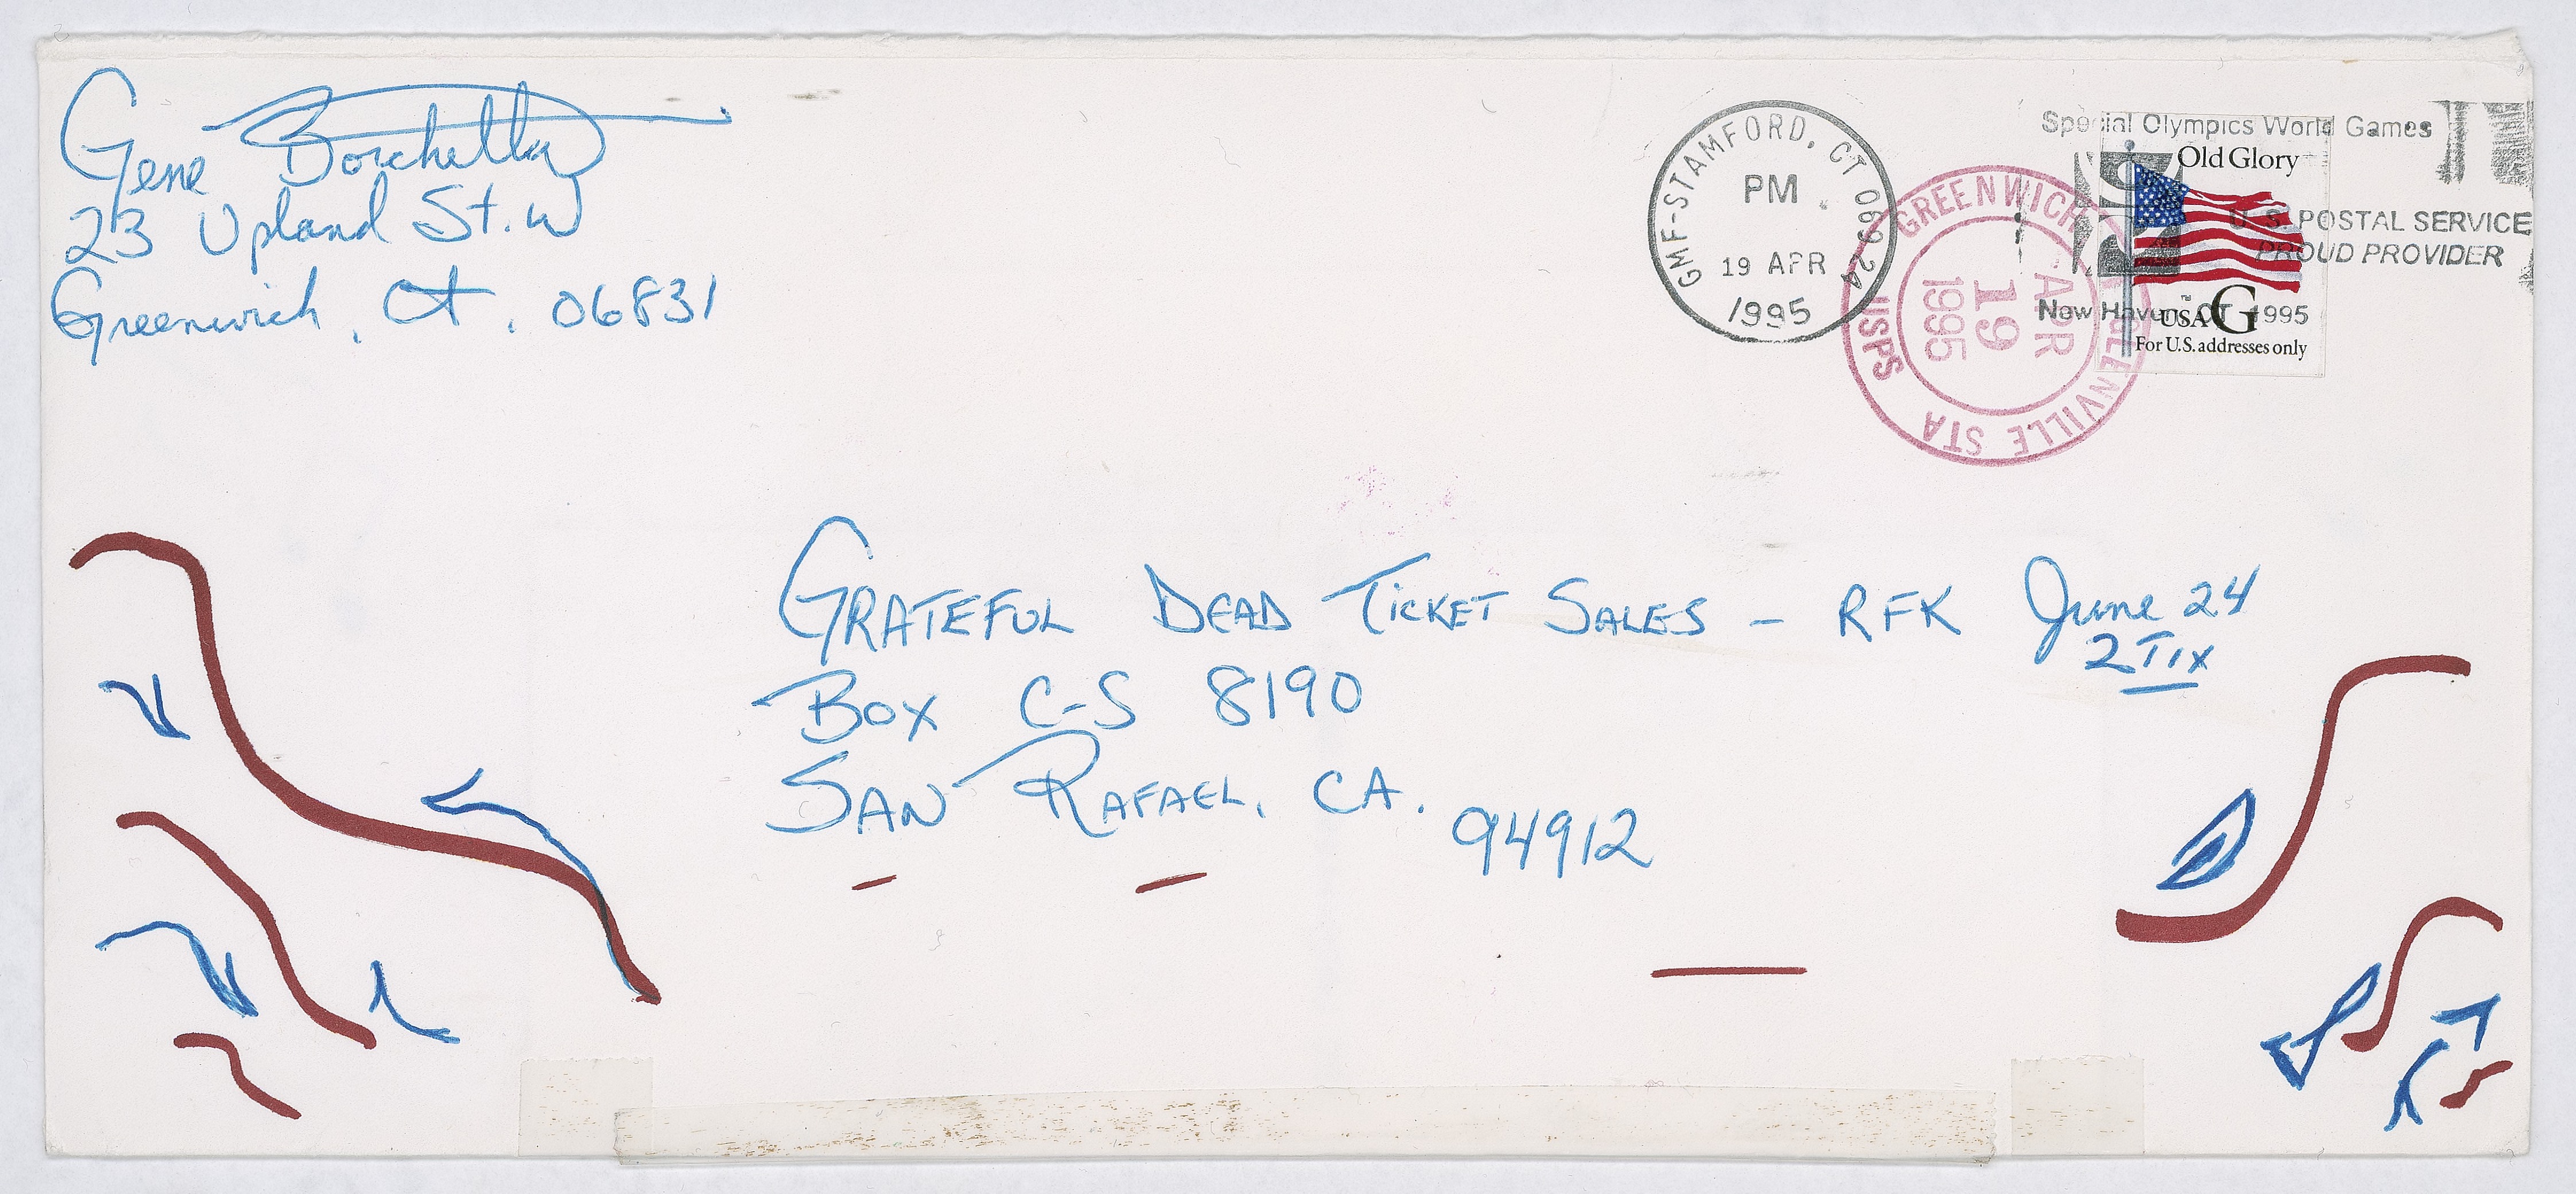 Gene Borchetta
23 Upland St. W
Greenwich, Ct. 06831
GMF-STAMFORD, CT 06924
PM
19 APR
1995
GREENWICH
GLENVILLE STA
USPS
APR
19
1995
Special Olympics World Games
U.S. POSTAL SERVICE
PROUD PROVIDER
New Haven, CT 1995
Old Glory
USA G
For U.S. addresses only
GRATEFUL DEAD TICKET SALES - RFK June 24
2 TIX
BOX C-S 8190
SAN RAFAEL, CA.
94912